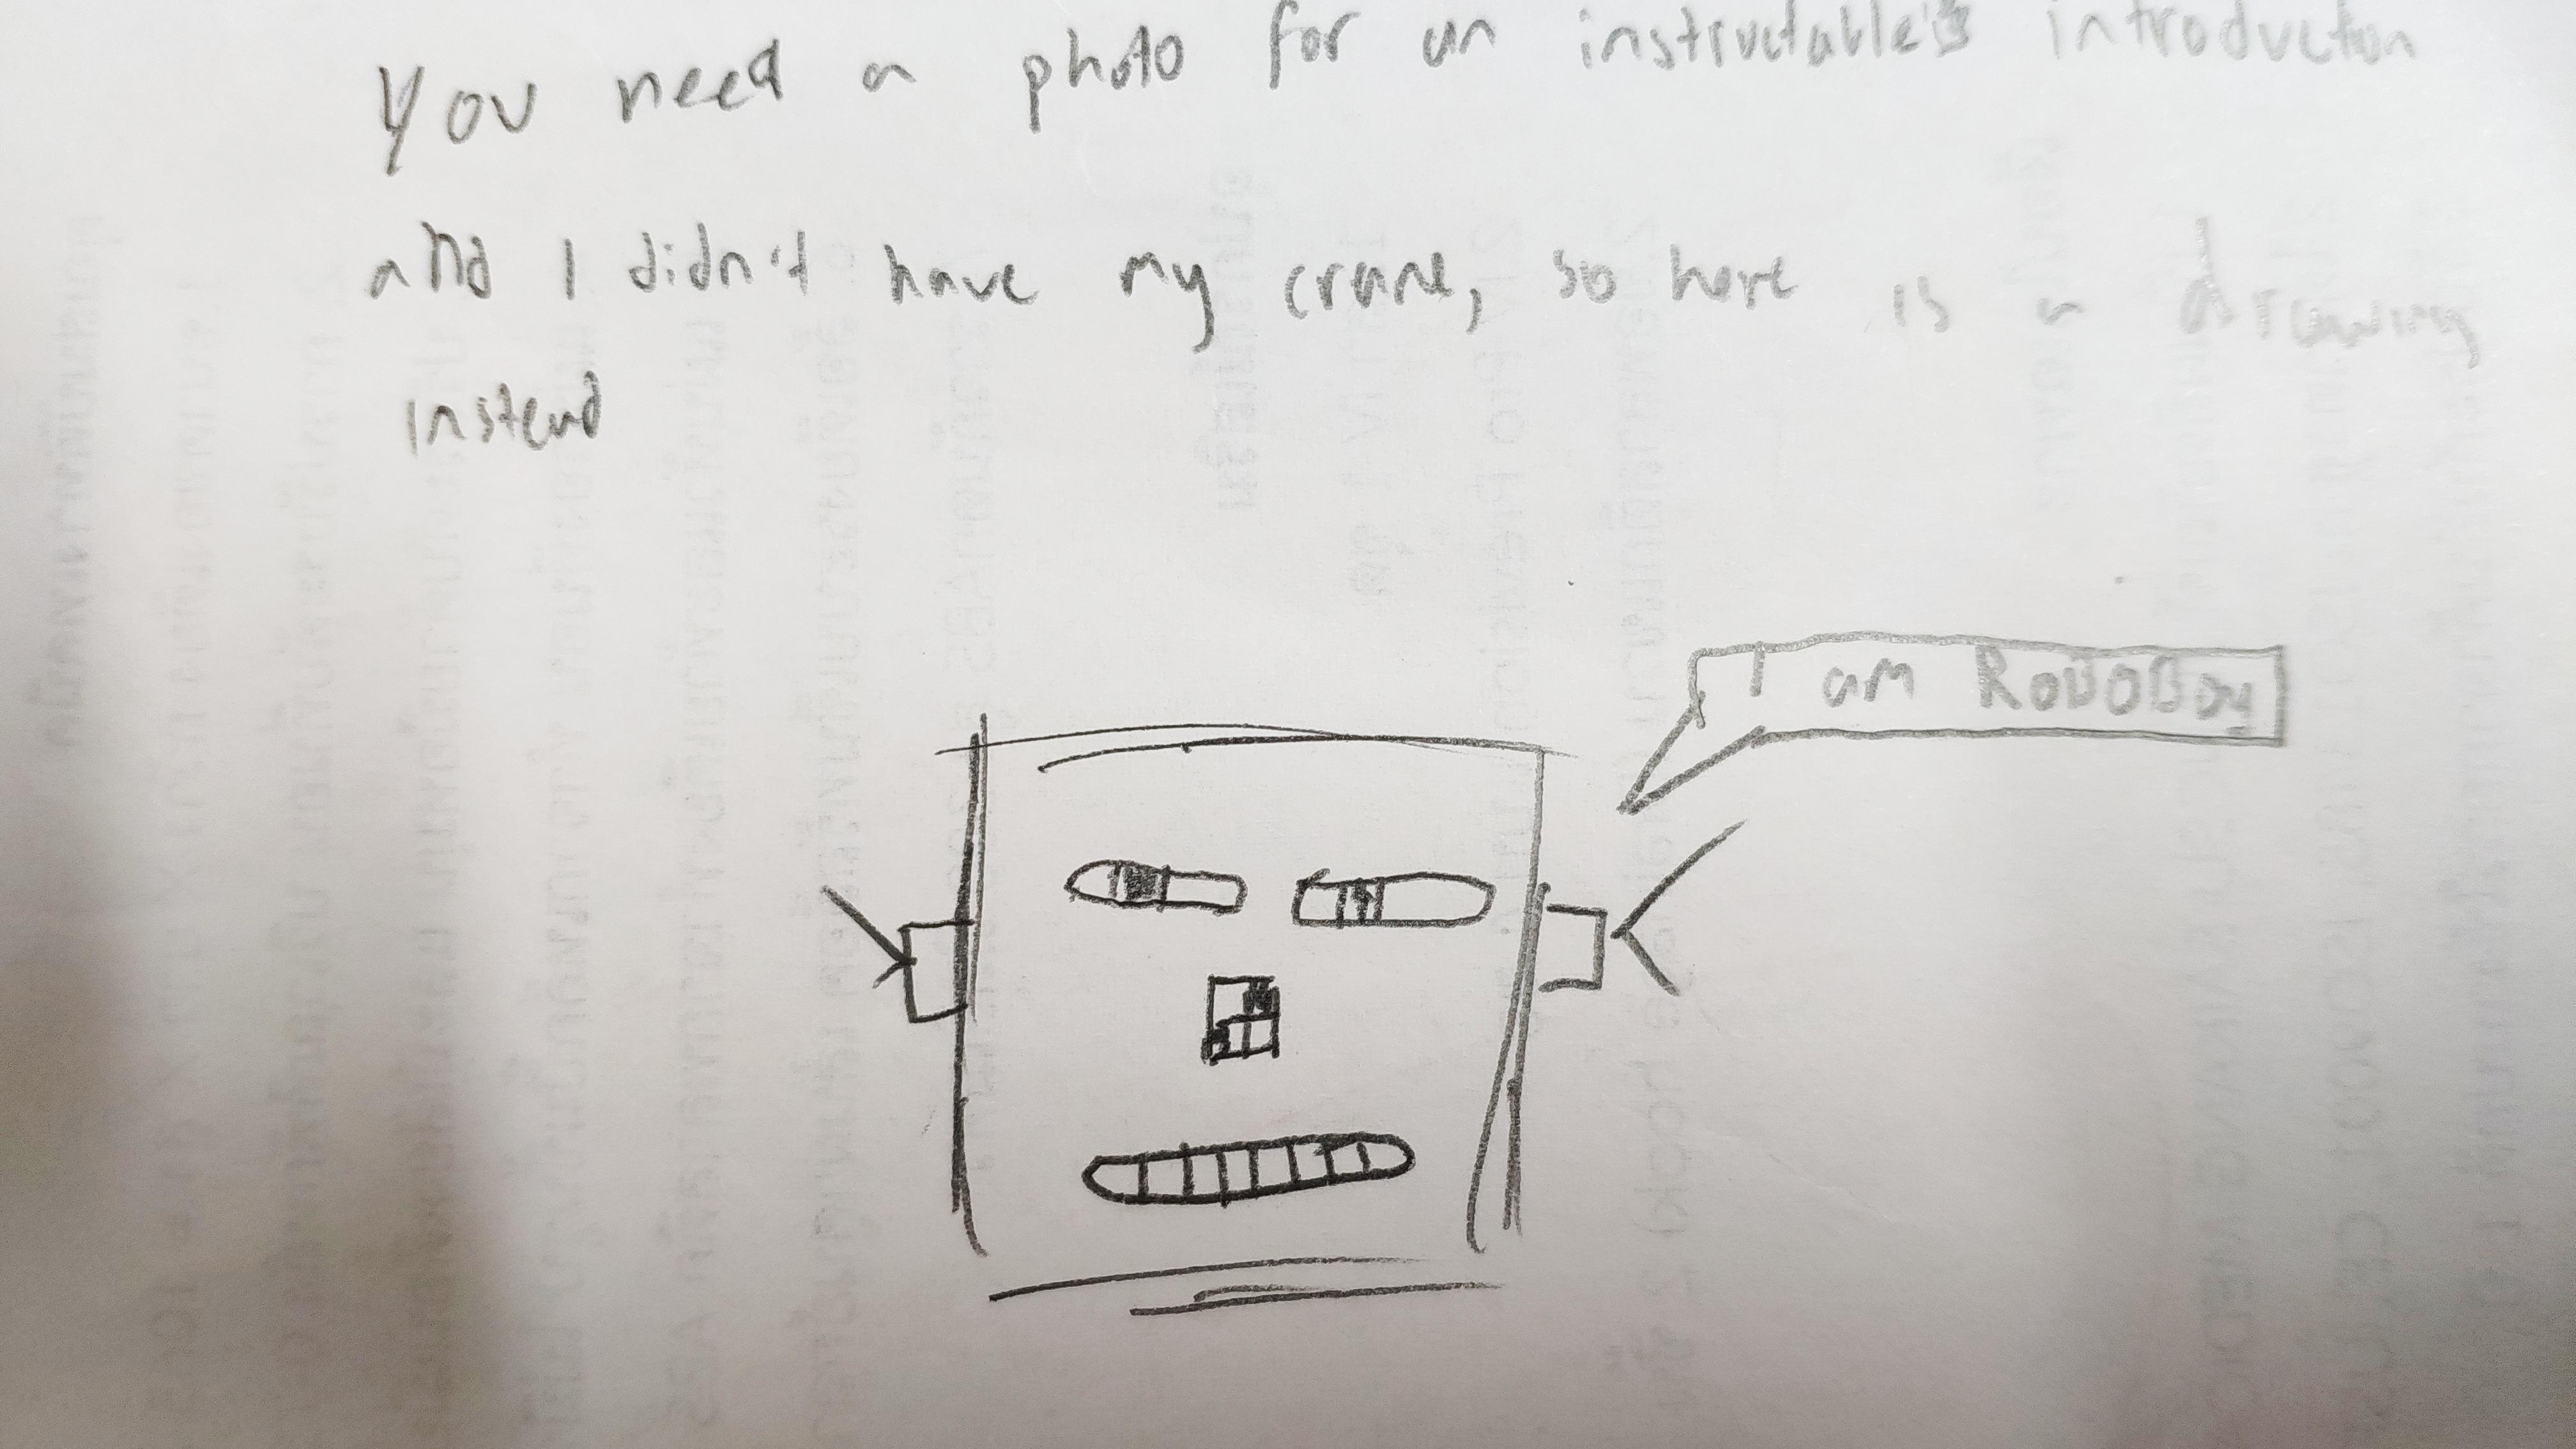 You need a photo for an instructable's introduction
and I didn't have my crane, so here is a drawing
instead
I am RoBOBoy